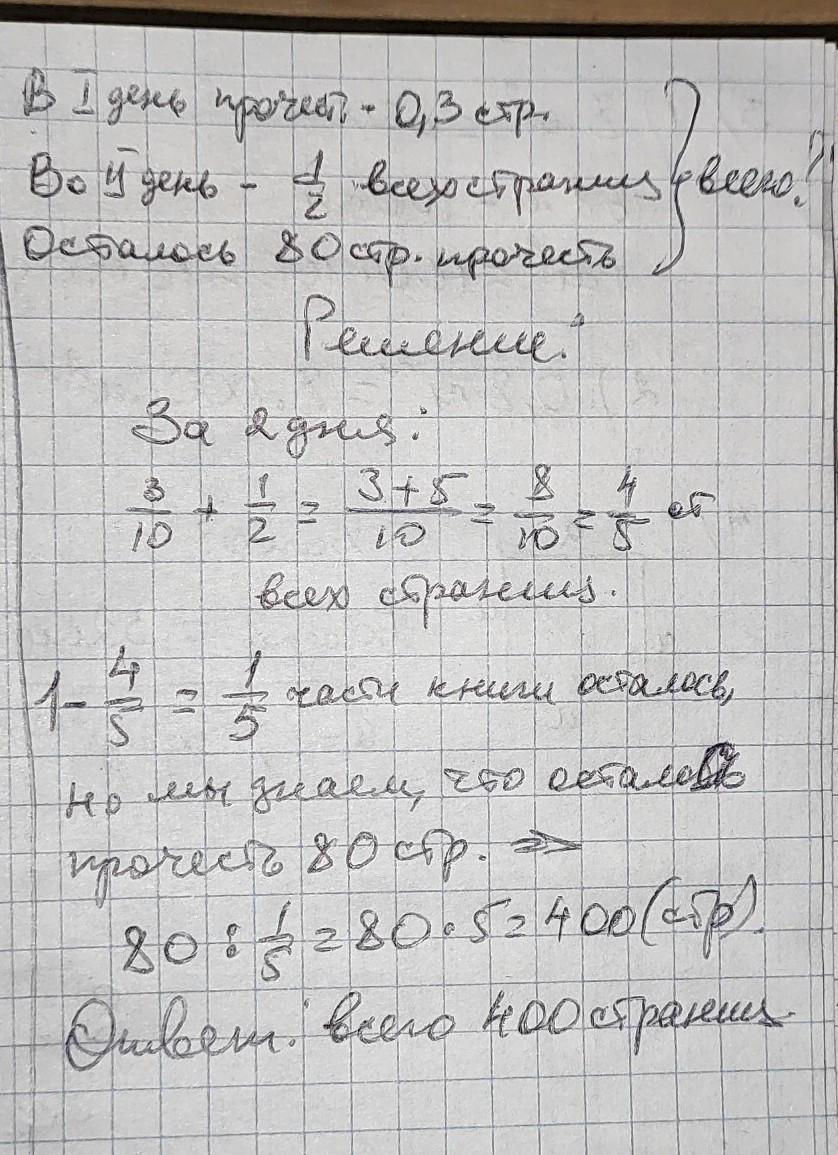 В I день прочест - 0,3 стр.
Во II день - 1/2 всех страниц } всего?
Осталось 80 стр. прочесть
Решение:
За 2 дня:
3/10 + 1/2 = 3+5/10 = 8/10 = 4/5 от
всех страниц.
1 - 4/5 = 1/5 части книги осталось,
но мы знаем, что осталось
прочесть 80 стр. ⇒
80 : 1/5 = 80 · 5 = 400 (стр).
Ответ: всего 400 страниц